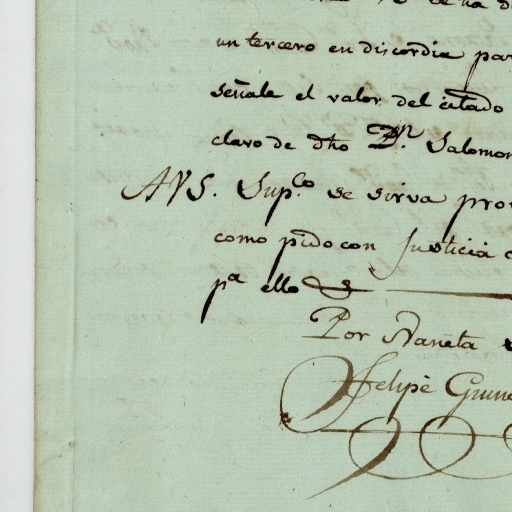 un tercero en discordia par
señale el valor del citado
clavo de dho Dn. Salomon
A VS. Supco. se sirva pro
como pido con Justicia
pa ello &
Por Naneta
Felipe